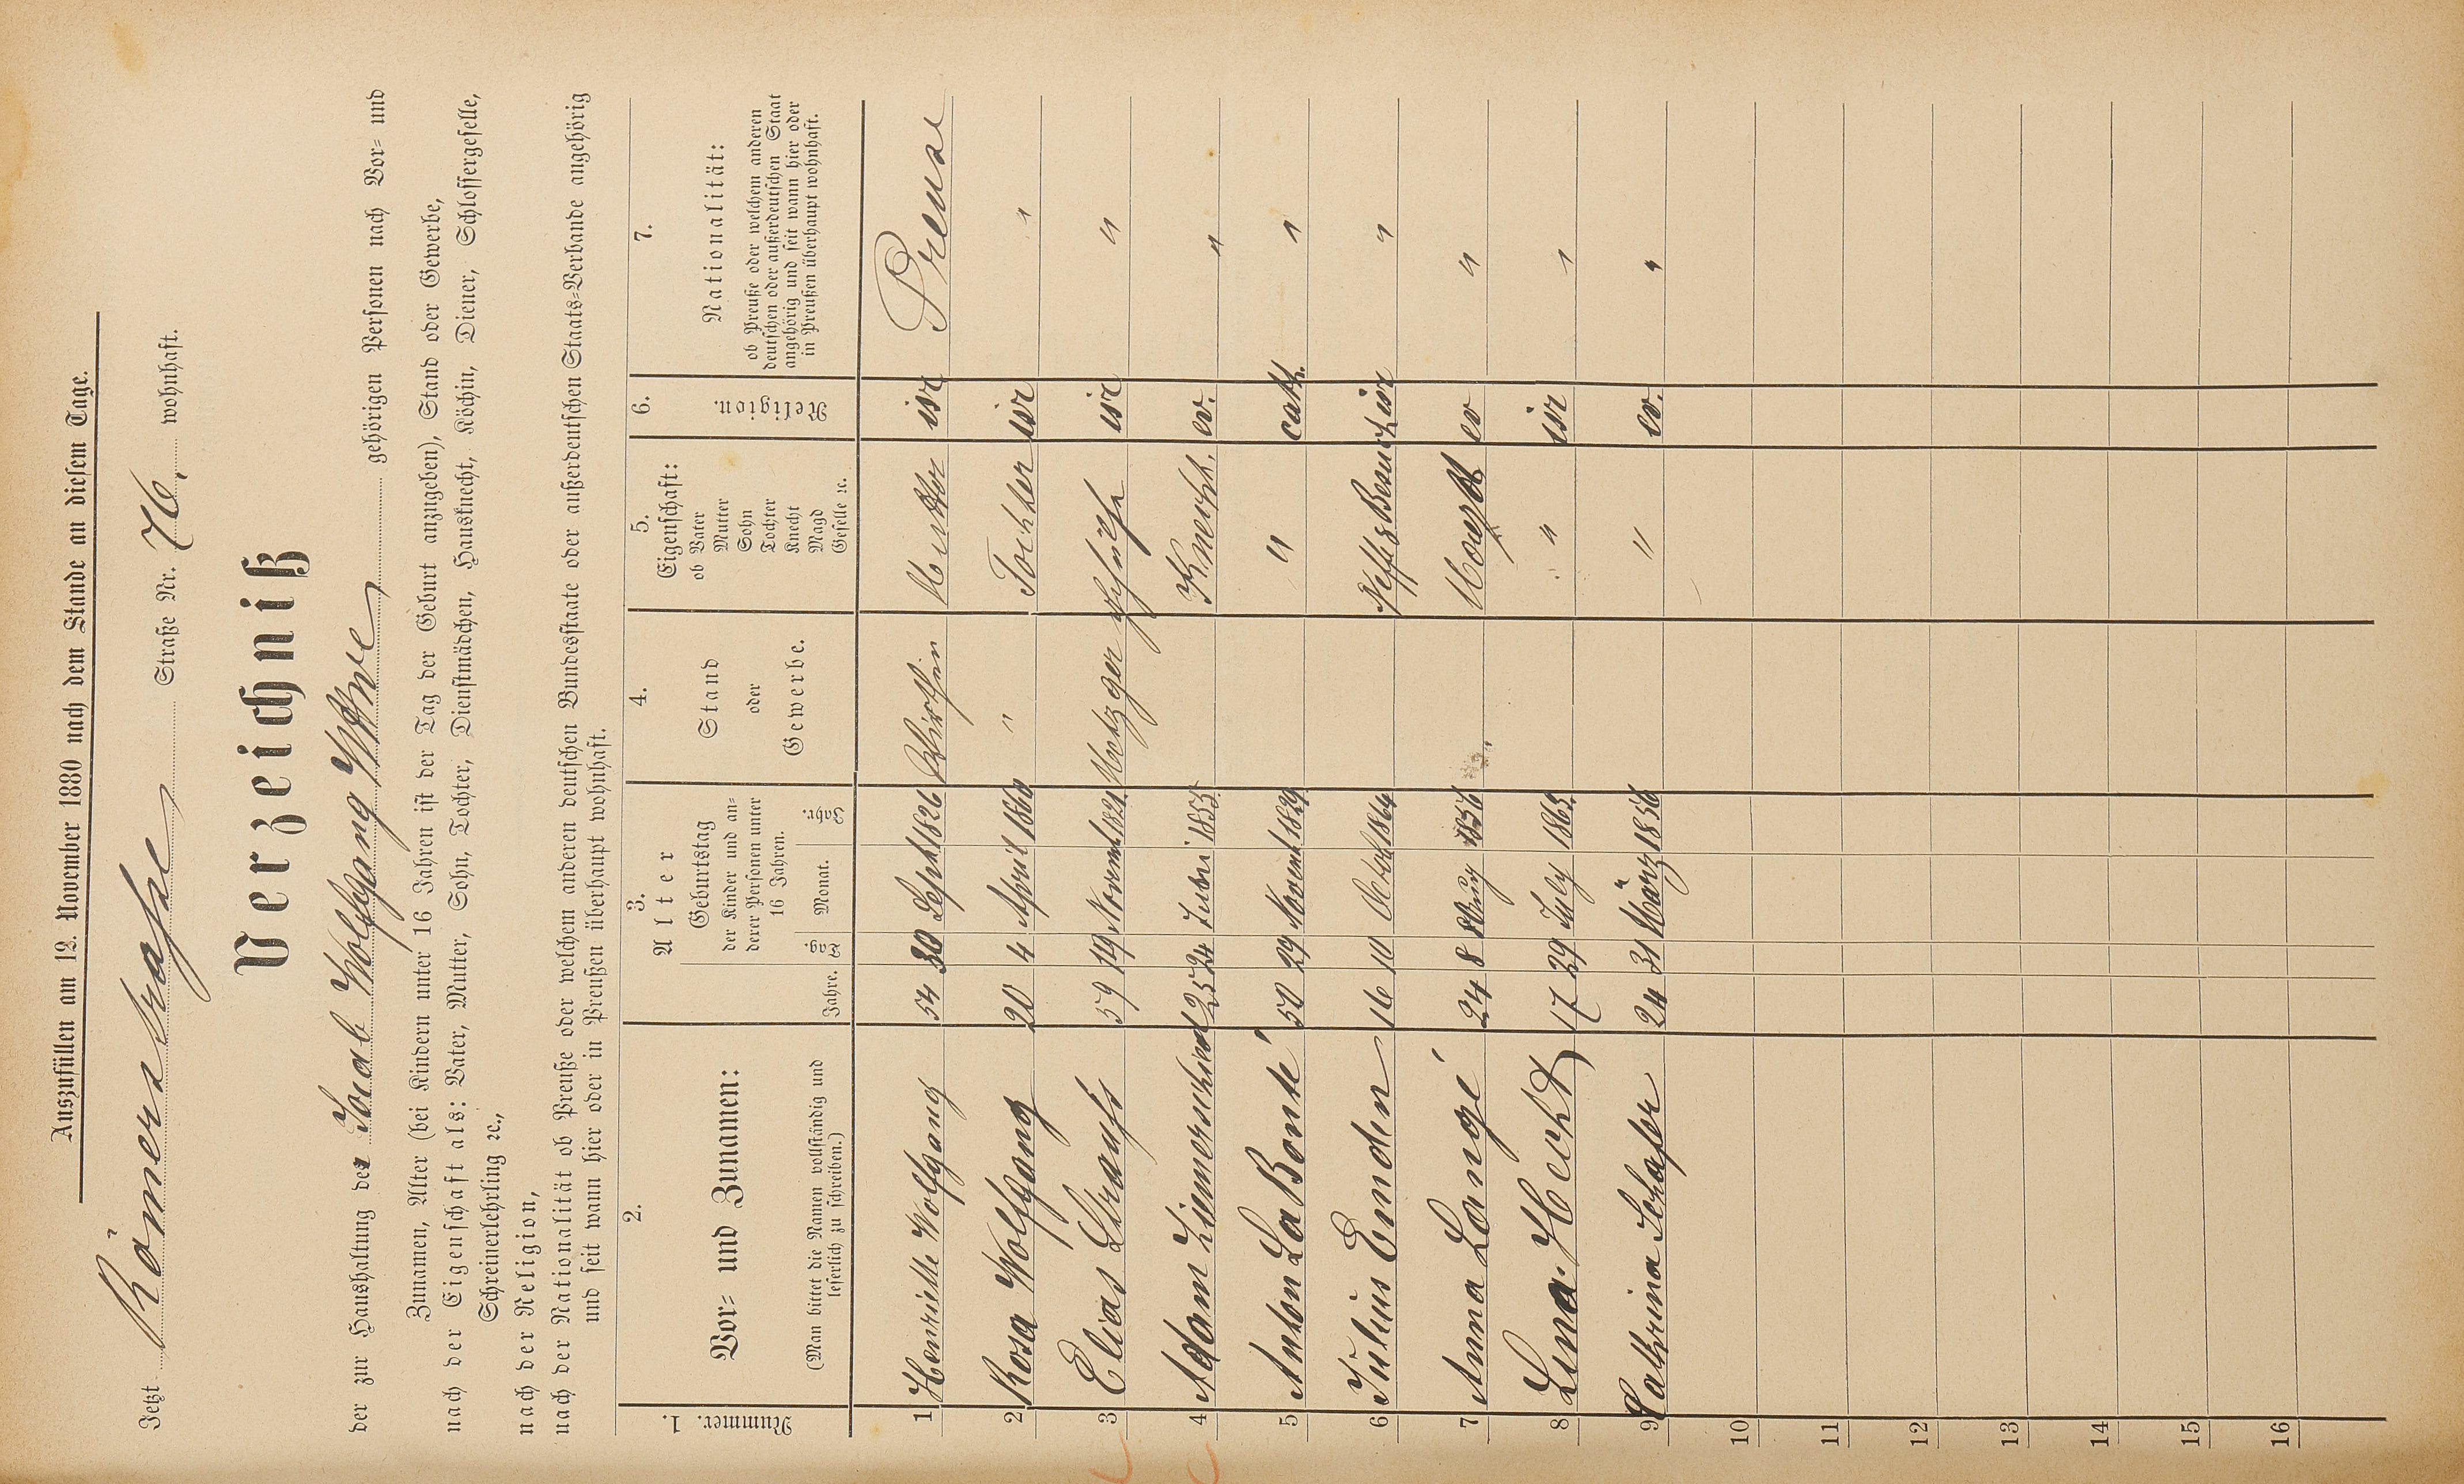 Auszufüllen am 12. November 1880 nach dem Stande an diesem Tage.
Jetzt Römerstraße Straße Nr. 76. wohnhaft.
Verzeichniß
der zur Haushaltung der Jocab Wolfgang Wttwe gehörigen Personen nach Vor- und
Zunamen, Alter (bei Kindern unter 16 Jahren ist der Tag der Geburt anzugeben), Stand oder Gewerbe,
nach der Eigenschaft als: Vater, Mutter, Sohn, Tochter, Dienstmädchen, Hausknecht, Köchin, Diener, Schlossergeselle,
Schreinerlehrling ꝛc.,
nach der Religion,
nach der Nationalität ob Preuße oder welchem anderen deutschen Bundesstaate oder außerdeutschen Staats-Verbande angehörig
und seit wann hier oder in Preußen überhaupt wohnhaft.
1. 2. 3. 4. 5. 6. 7.
Nummer.
Vor- und Zunamen:
(Man bittet die Namen vollständig und
leserlich zu schreiben.)
Alter
Jahre.
Geburtstag
der Kinder und an-
derer Personen unter
16 Jahren.
Tag. Monat. Jahr.
Stand
oder
Gewerbe.
Eigenschaft:
ob Vater
Mutter
Sohn
Tochter
Knecht
Magd
Geselle ꝛc.
Religion.
Nationalität:
ob Preuße oder welchem anderen
deutschen oder außerdeutschen Staat
angehörig und seit wann hier oder
in Preußen überhaupt wohnhaft.
1 Henriette Wolfgang 54 30 Sept 1826 Wirthin Mutter isr Preuse
2 Rosa Wolfgang 20 4 April 1860 " Tochter isr "
3 Elias Strauß 59 19 Novemb 1821 Metzger isr "
4 Adam 25 24 1855 Knecht. ev. "
5 Anton La Bonté 50 29 Novemb 1829 " cath. "
6 Julius Emden 16 10 Octob 1864 Besuch isr "
7 Anna Langé 24 8 Aug 1856 Magd ev "
8 Lina Hecht 17 29 July 1863 " isr "
9 Cathrina Schäfer 24 31 März 1856 " ev. "
10
11
12
13
14
15
16